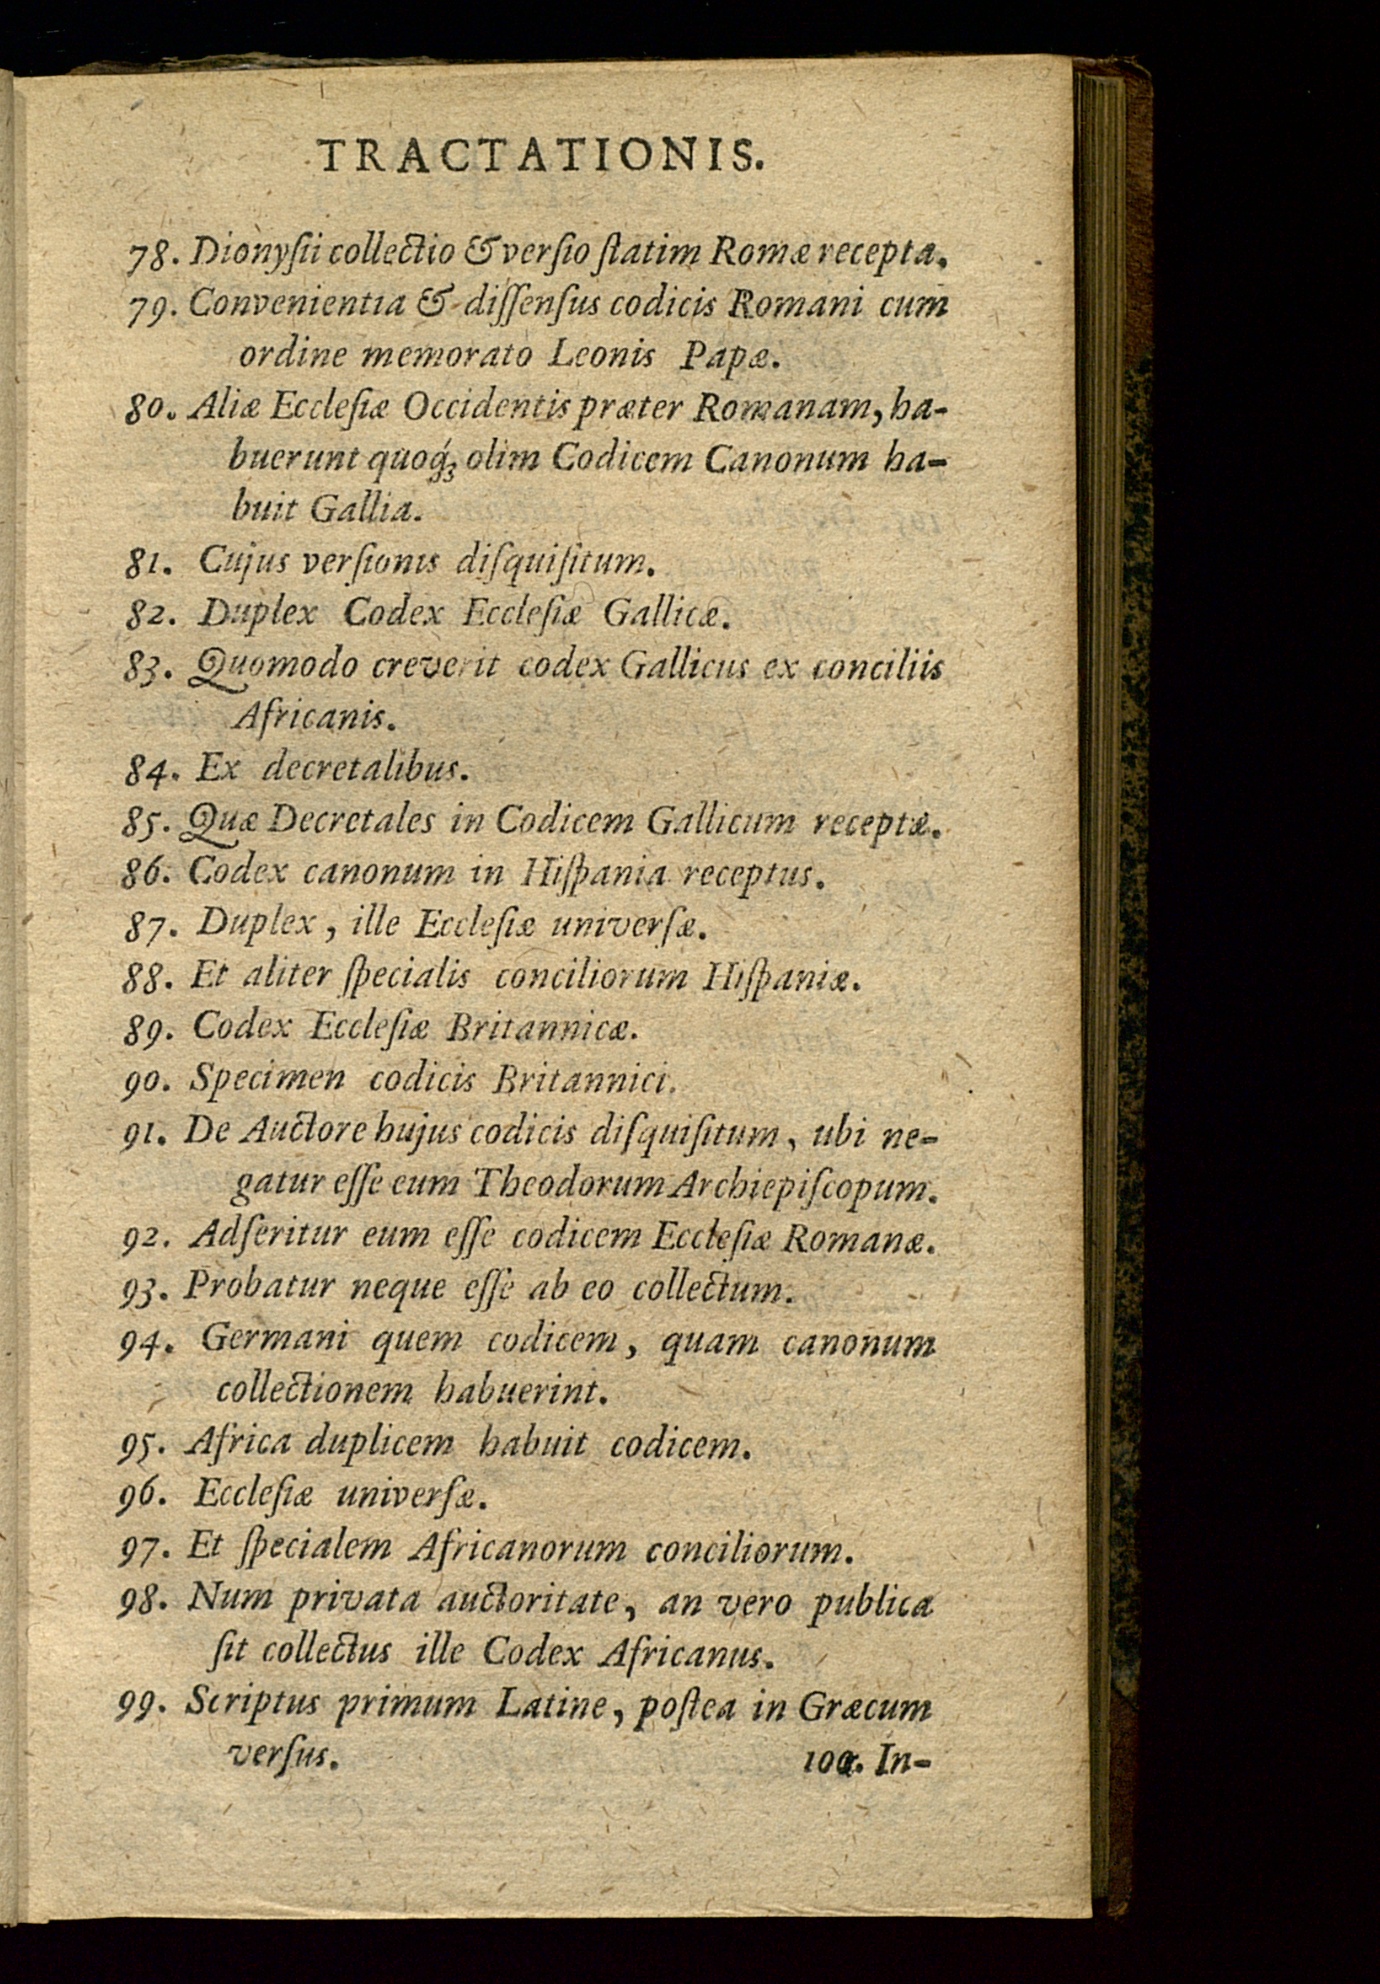 TRACTATIONIS.
78. Dionyſii collectio & verſio ſtatim Romæ recepta.
79. Convenientia & diſſenſus codicis Romani cum
ordine memorato Leonis Papæ.
80. Aliæ Eccleſiæ Occidentis præter Romanam, ha-
buerunt quoq́ꝫ olim Codicem Canonum ha-
buit Gallia.
81. Cujus verſionis diſquiſitum.
82. Duplex Codex Eccleſiæ Gallicæ.
83. Quomodo creverit codex Gallicus ex conciliis
Africanis.
84. Ex decretalibus.
85. Quæ Decretales in Codicem Gallicum receptæ.
86. Codex canonum in Hiſpania receptus.
87. Duplex, ille Eccleſiæ univerſæ.
88. Et aliter ſpecialis conciliorum Hiſpaniæ.
89. Codex Eccleſiæ Britannicæ.
90. Specimen codicis Britannici.
91. De Auctore hujus codicis diſquiſitum, ubi ne-
gatur eſſe eum Theodorum Archiepiſcopum.
92. Adſeritur eum eſſe codicem Eccleſiæ Romanæ.
93. Probatur neque eſſe ab eo collectum.
94. Germani quem codicem, quam canonum
collectionem habuerint.
95. Africa duplicem habuit codicem.
96. Eccleſiæ univerſæ.
97. Et ſpecialem Africanorum conciliorum.
98. Num privata auctoritate, an vero publica
ſit collectus ille Codex Africanus.
99. Scriptus primum Latine, poſtea in Græcum
verſus. 100. In-